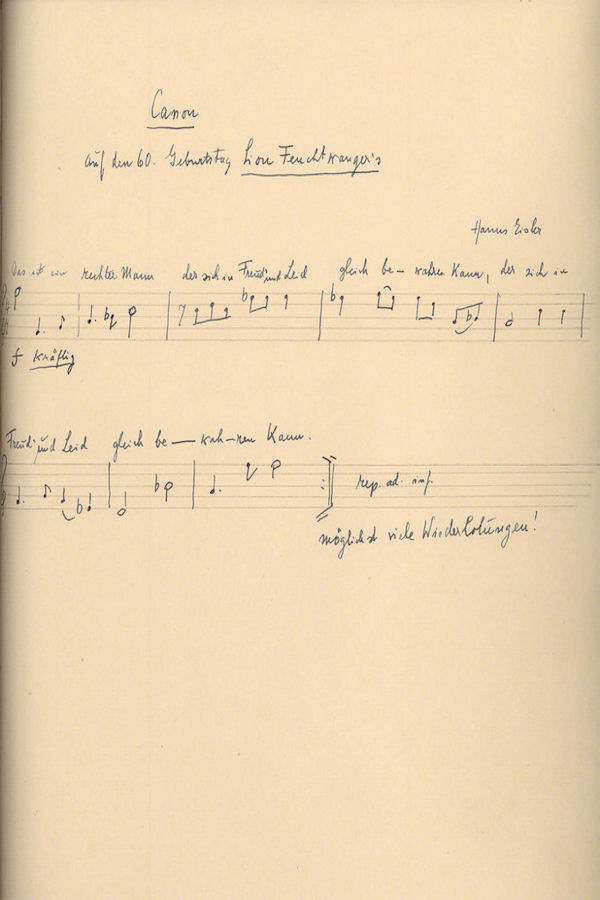 Canon
auf den 60. Geburtstag Lion Feuchtwanger's
Hanns Eisler
Das ist ein rechter Mann der sich in Freud' und Leid gleich be– wahren Kann, der sich in
f Kräftig
Freud' und Leid gleich be — wah–ren Kann.
rep. ad. inf.
möglichst viele Wiederholungen!